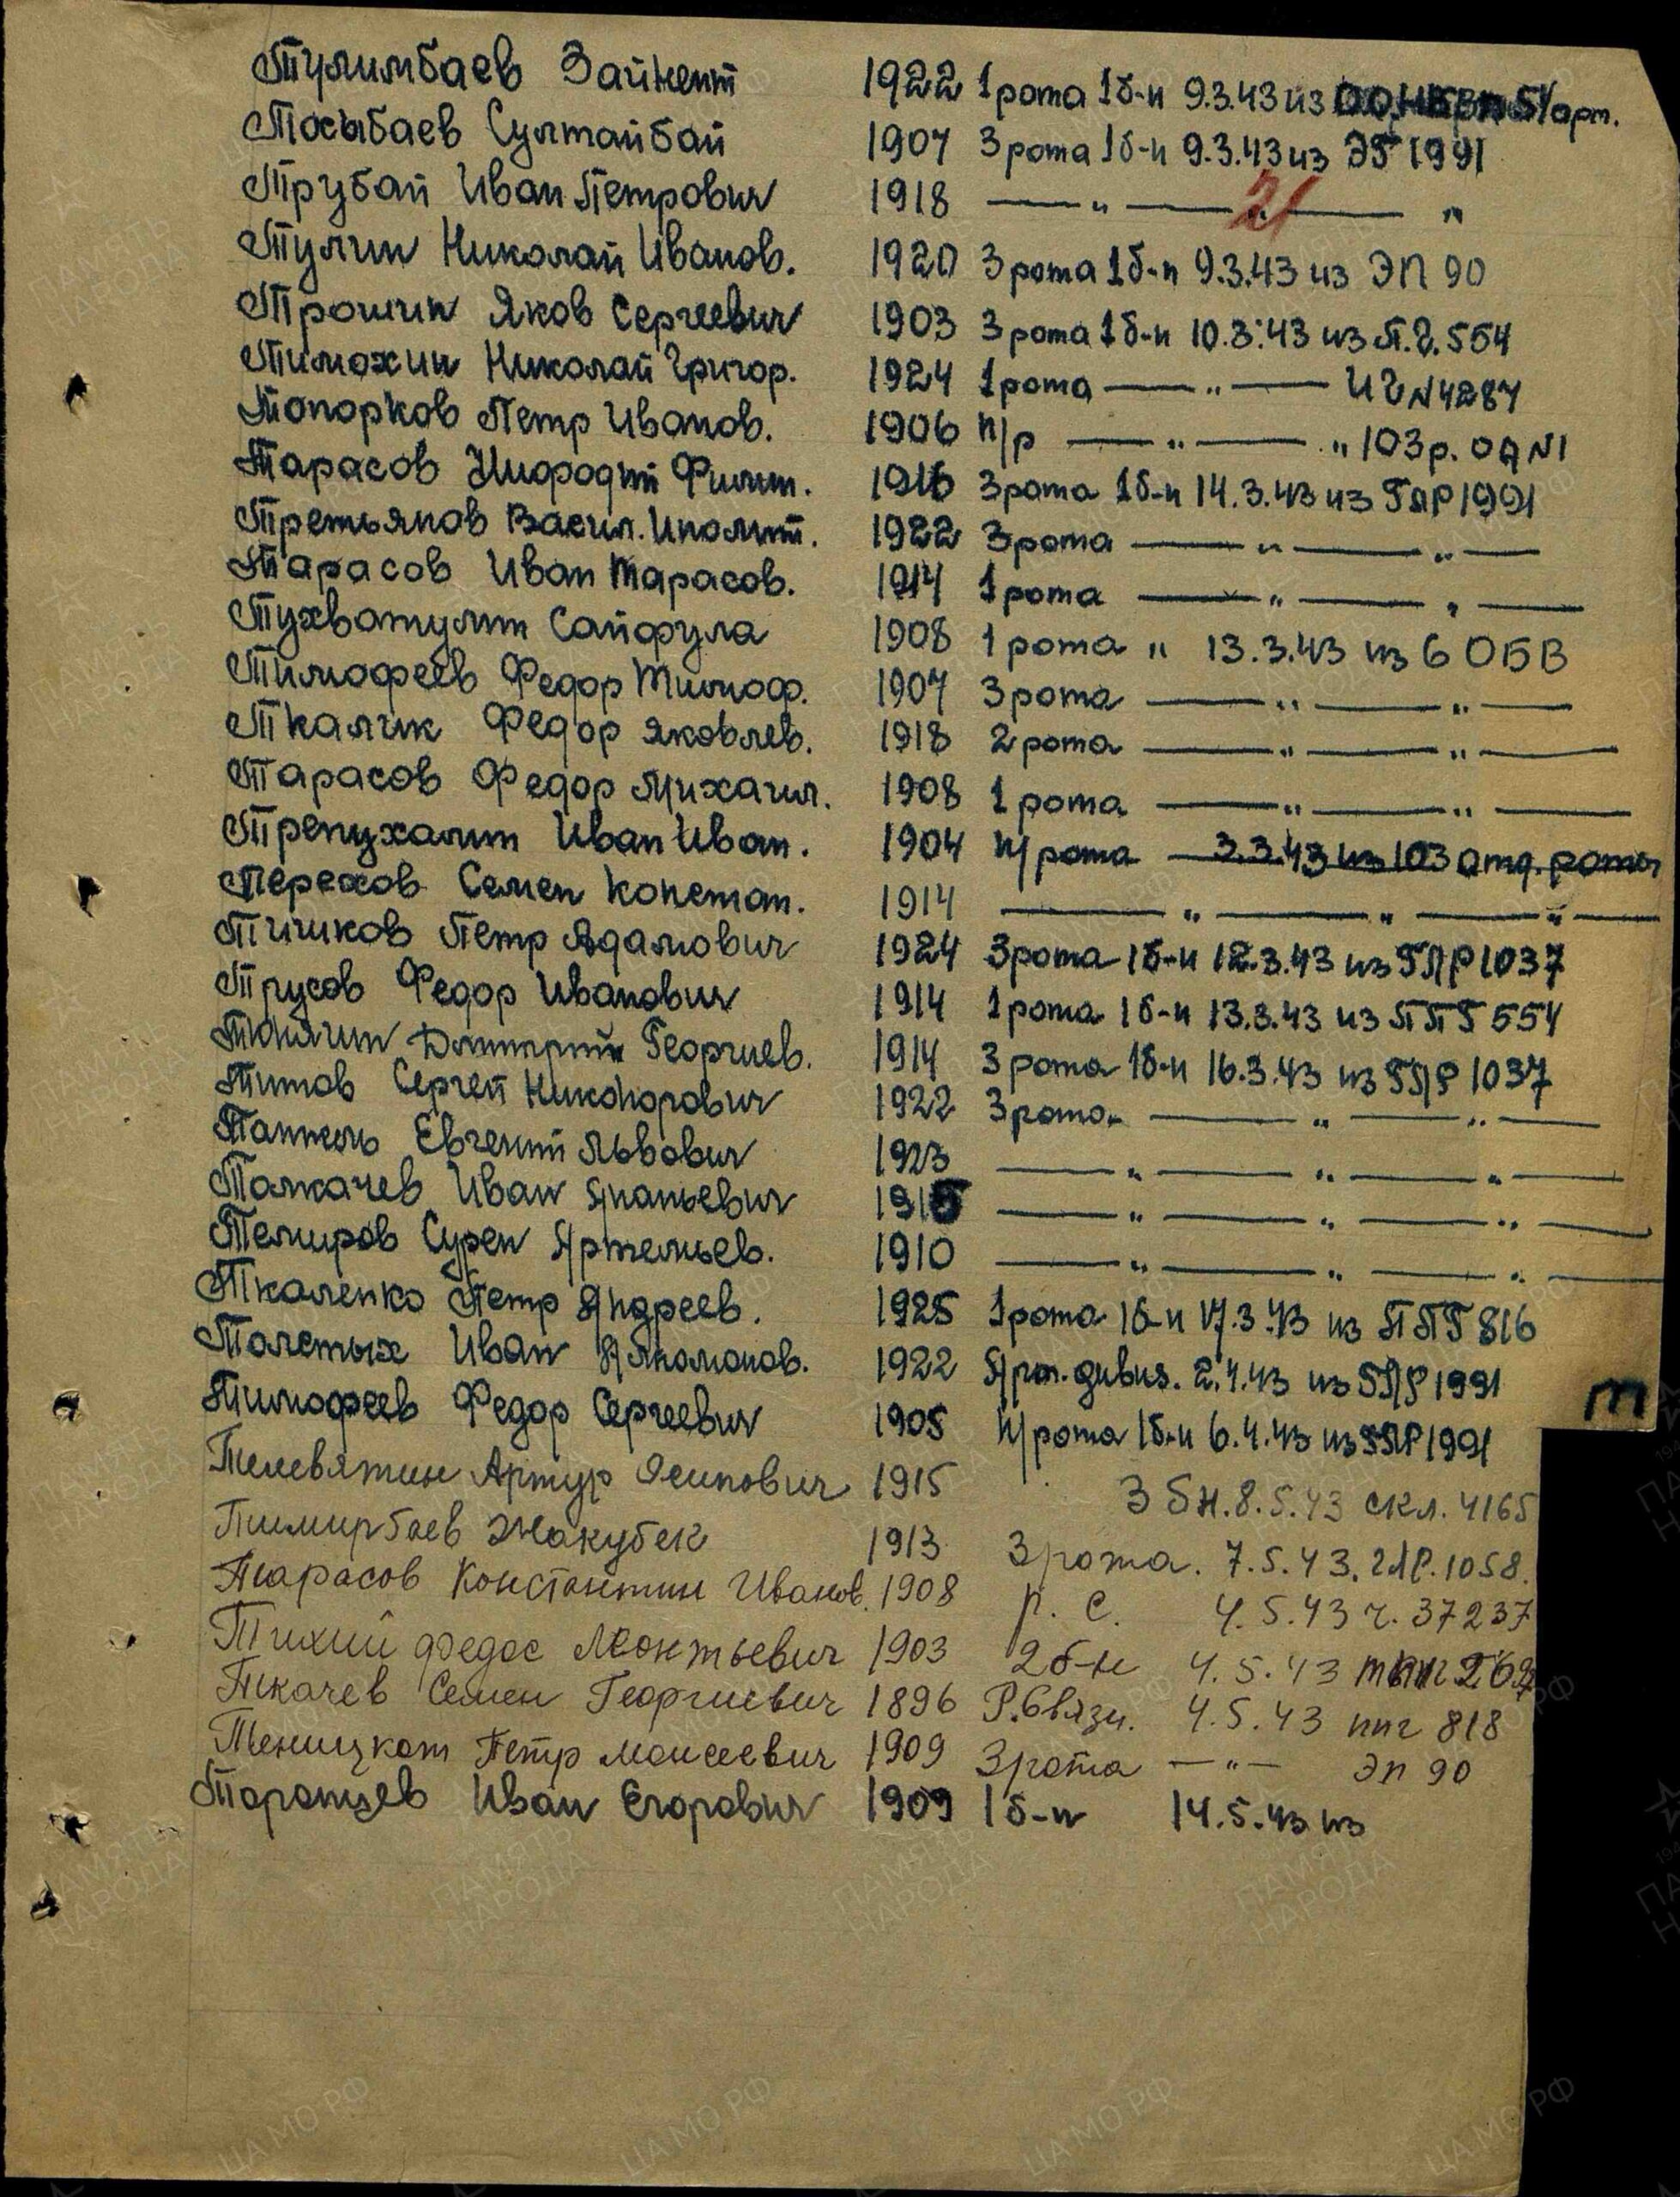 Тулимбаев Зайнент 1922 1 рота 1 б-н 9.3.43 из арт.
Тосыбаев Султанбай 1907 3 рота 1 б-н 9.3.43 из ЭГ 1991
Трубай Иван Петрович 1918 — " — " — "
21
Тулин Николай Иванов. 1920 3 рота 1 б-н 9.3.43 из ЭП 90
Трошин Яков Сергеевич 1903 3 рота 1 б-н 10.3.43 из П.Г. 554
Тимохин Николай Григор. 1924 1 рота — " — ИГ N 4287
Топорков Петр Иванов. 1906 п/р — " — " 103 р. ОД N1
Тарасов Филип. 1916 3 рота 1 б-н 14.3.43 из ГЛР 1991
Третьяков Васил. Иполит. 1922 3 рота — " — " —
Тарасов Иван Тарасов. 1914 1 рота — " — " —
Тухватулин Сайфула 1908 1 рота " 13.3.43 из 6 ОБВ
Тимофеев Федор Тимоф. 1907 3 рота — " — " —
Ткалик Федор Яковлев. 1918 2 рота — " — " —
Тарасов Федор Михаил. 1908 1 рота — " — " —
Трепухалин Иван Иван. 1904 п/рота 3.3.43 из 103 отд. роты
Терехов Семен Констан. 1914 — " — " — " —
Тишков Петр Адамович 1924 3 рота 1 б-н 12.3.43 из ГЛР 1037
Трусов Федор Иванович 1914 1 рота 1 б-н 13.3.43 из ППГ 554
Тонягин Дмитрий Георгиев. 1914 3 рота 1 б-н 16.3.43 из ГЛР 1037
Титов Сергей Никонорович 1922 3 рота — " — " —
Таппель Евгений Львович 1923 — " — " — " —
Толкачев Иван Ананьевич 1915 — " — " — " —
Темиров Сурен Артемьев. 1910 — " — " — " —
Ткаленко Петр Андреев. 1925 1 рота 1 б-н 17.3.43 из ППГ 816
Толстых Иван 1922 Арт. дивиз. 2.4.43 из ГЛР 1991
Т
Тимофеев Федор Сергеевич 1905 п/рота 1 б-н 6.4.43 из ГЛР 1991
Телевятин Артур Осипович 1915 3 бн. 8.5.43 скл. 4165
Тимирбаев Жакубек 1913 3 рота. 7.5.43. глр. 1058.
Тарасов Константин Иванов. 1908 р. с. 4.5.43 г. 37237
Тихий Федос Леонтьевич 1903 2 б-н 4.5.43
Ткачев Семен Георгиевич 1896 Р. связи. 4.5.43 ппг 818
Петр Моисеевич 1909 3 рота — " — эп 90
Таранцев Иван Егорович 1909 1 б-н 14.5.43 из